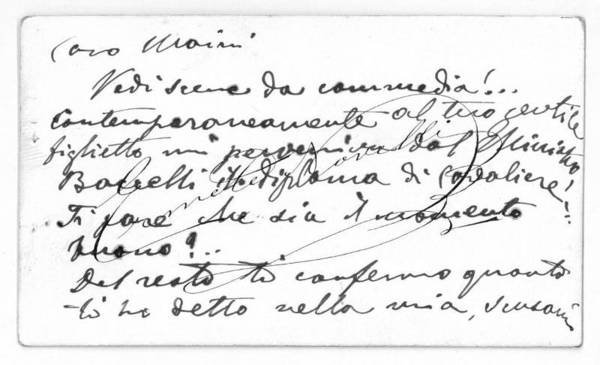 Caro Maini
Vedi scene da commedia!...
Contemporaneamente al tuo gentile
figlietto mi perveniva dal Ministro
Baccelli il diploma di Cavaliere!
Ti pare che sia il momento
buono?...
Del resto ti confermo quanto
ti ho detto nella mia, scusami